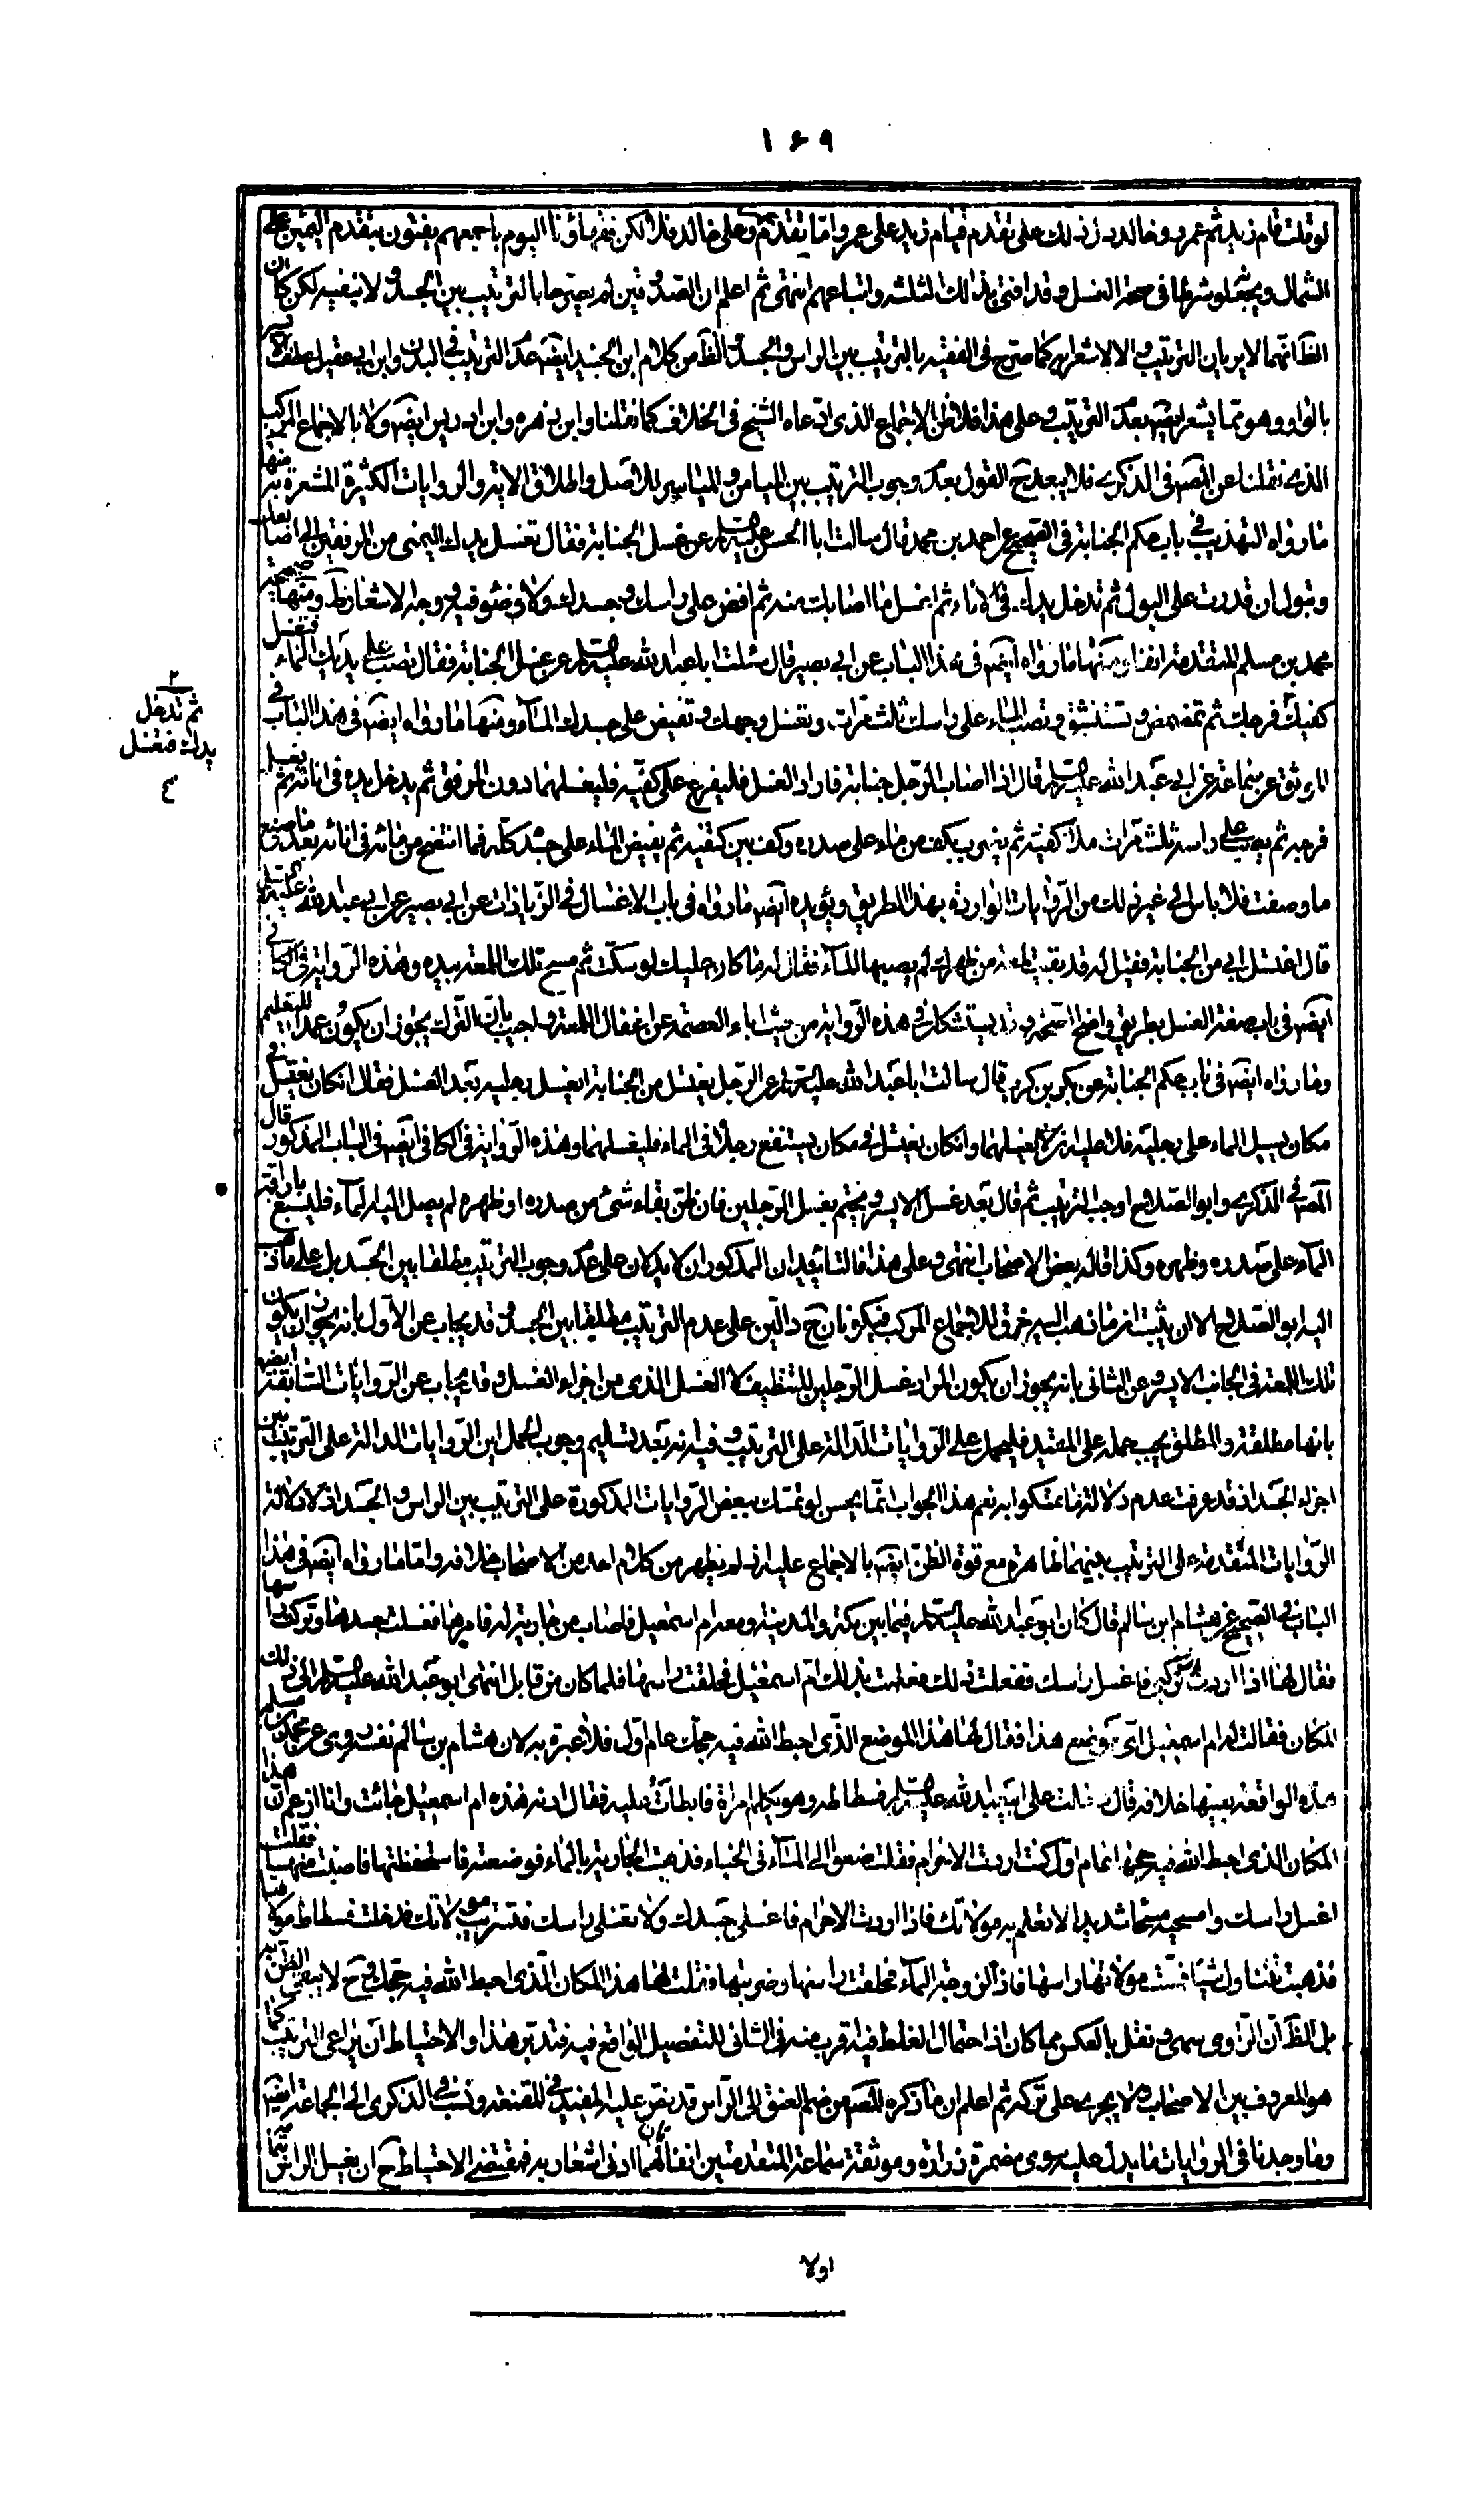 ١٦٩
لو قلت قام زيد ثم عمرو وخالد دل ذلك على تقدم قيام زيد على عمرو واما تقدم عمرو على خالد فلا لكن فقهاؤنا اليوم باجمعهم يفتون بتقدم اليمين على
الشمال ويجعلونه شرطا في صحة الغسل وقد افتى بذلك الثلثة واتباعهم انتهى ثم اعلم ان الصدوقين لم يصرحا بالترتيب بين الجسد ولا بنفيه لكن كان
الظ انهما لا يريان الترتيب والا لاشعرا به كما صرح في الفقيه بالترتيب بين الراس والجسد والظ من كلام ابن الجنيد ايضه عدم الترتيب في البدن وابن ابي عقيل عطف الايسر
بالواو وهو مما يشعر ايضه بعدم الترتيب وعلى هذا فلا يظن الاجماع الذي ادعاه الشيخ في الخلاف كما نقلنا وابن زهره وابن ادريس ايضه ولا بالاجماع المركب
الذي نقلنا عن المصه في الذكرى فلا يبعد ح القول بعدم وجوب الترتيب بين الميامن والمياسر للاصل واطلاق الاية والروايات الكثيرة المشعرة به منها
ما رواه التهذيب في باب حكم الجنابة في الصحيح عن احمد بن محمد قال سالت ابا الحسن عليه السلم عن غسل الجنابة فقال تغسل يدك اليمنى من المرفقين الى اصابعك
وتبول ان قدرت على البول ثم تدخل يدك في الاناء ثم اغسل ما اصابك منه ثم افض على راسك وجسدك ولا وضوء فيه ووجه الاشعار ظ ومنها صحيحة
محمد بن مسلم المتقدمة انفا ومنها ما رواه ايضه في هذا الباب عن ابي بصير قال سئلت ابا عبد الله عليه السلم عن غسل الجنابة فقال تصب على يديك الماء فتغسل
كفيك ثم تدخل يدك فتغسل فرجك ثم تمضمض وتستنشق وتصب الماء على راسك ثلث مرات وتغسل وجهك وتفيض على جسدك الماء ومنها ما رواه ايضه في هذا الباب في
الموثق عن سماعة عن ابي عبد الله عليه السلم قال اذا اصاب الرجل جنابة فاراد الغسل فليفرغ على كفيه فليغسلهما دون المرفق ثم يدخل يده في انائه ثم يغسل
فرجه ثم يصب على راسه ثلث مرات ملأ كفيه ثم يضرب بكف من ماء على صدره وكف بين كتفيه ثم يفيض الماء على جسده كله فما انتضح من مائه في انائه بعد ما صنع
ما وصفت فلا باس الى غير ذلك من الروايات الواردة بهذا الطريق ويؤيده ايضه ما رواه في باب الاغسال في الزيادات عن ابي بصير عن ابي عبد الله عليه السلم
قال اغتسل ابي من الجنابة فقيل له قد بقيت لمعة من ظهرك لم يصبها الماء فقال له ما كان عليك لو سكت ثم مسح تلك اللمعة بيده وهذه الرواية في الكافي
ايضه في باب صفة الغسل بطريق واضح الصحة وقد يستشكل في هذه الرواية من حيث اباء العصمة عن اغفال اللمعة واجيب بان الترك يجوز ان يكون عمدا للتعليم
وما رواه ايضه في باب حكم الجنابة عن بكر بن كرب قال سالت ابا عبد الله عليه السلم عن الرجل يغتسل من الجنابة ايغسل رجليه بعد الغسل فقال ان كان يغتسل في
مكان يسيل الماء على رجليه فلا عليه ان لا يغسلهما وان كان يغتسل في مكان يستنقع رجلاه في الماء فليغسلهما وهذه الرواية في الكافي ايضه في الباب المذكور قال
المصه في الذكرى وابو الصلاح اوجب الترتيب ثم قال بعد غسل الايسر ويختم بغسل الرجلين فان ظن بقاء شيء من صدره او ظهره لم يصل اليه الماء فليسبغ باراقة
الماء على صدره وظهره وكذا قاله بعض الاصحاب انتهى وعلى هذا فالتائيدان المذكوران لا يدلان على عدم وجوب الترتيب مطلقا بين الجسد بل على ما ذهب
اليه ابو الصلاح الا ان يثبت ان ما ذهب اليه خرق للاجماع المركب فيكونان ح دالين على عدم الترتيب مطلقا بين الجسد وقد يجاب عن الاول بانه يجوز ان يكون
تلك اللمعة في الجانب الايسر وعن الثاني بانه يجوز ان يكون المراد غسل الرجلين للتنظيف لا الغسل الذي من اجزاء الغسل وقد يجاب عن الروايات السابقة ايضه
بانها مطلقة والمطلق يجب حمله على المقيد فليحمل على الروايات الدالة على الترتيب وفيه انه بعد تسليم وجوب الحمل اين الروايات الدالة على الترتيب بين
اجزاء الجسد اذ قد عرفت عدم دلالة ما تمسكوا به نعم هذا الجواب انما يحسن لو تمسك ببعض الروايات المذكورة على الترتيب بين الراس والجسد اذ دلالة
الروايات المتقدمة على الترتيب بينهما ظاهرة مع قوة الظن ايضه بالاجماع عليه اذ لم يظهر من كلام احد من الاصحاب خلافه واما ما رواه ايضه في هذا
الباب في الصحيح عن هشام بن سالم قال كان ابو عبد الله عليه السلم فيما بين مكة والمدينة ومعه ام اسمعيل فاصاب من جارية له فامرها فغسلت جسدها وتركت راسها
فقال لها اذا اردت ان تركبي فاغسلي راسك ففعلت ذلك فعلمت بذلك ام اسمعيل فحلقت راسها فلما كان من قابل انتهى ابو عبد الله عليه السلم الى ذلك
المكان فقالت له ام اسمعيل اي موضع هذا فقال لها هذا الموضع الذي احبط الله فيه حجك عام اول فلا عبرة به لان هشام بن سالم نفسه روى عن محمد بن مسلم
هذه الواقعة بعينها خلافه قال دخلت على ابي عبد الله عليه السلم فسطاطه وهو يكلم امراة فابطات عليه فقال ادنه هذه ام اسمعيل جائت وانا ازعم ان هذا
المكان الذي احبط الله فيه حجها عام اول كنت اردت الاحرام فقلت ضعوا لي الماء في الخباء فذهبت الجارية بالماء فوضعته فاستخففتها فاصبت منها فقلت
اغسلي راسك وامسحيه مسحا شديدا لا تعلم به مولاتك فاذا اردت الاحرام فاغسلي جسدك ولا تغسلي راسك فتستريب مولاتك فدخلت فسطاط مولاتها
فذهبت تتناول شيئا فمست مولاتها راسها فاذا لزوجة الماء فحلقت راسها وضربتها فقلت لها هذا المكان الذي احبط الله فيه حجك وح لا يبقى الظن به
بل الظ ان الراوي سهى ونقل بالعكس مما كان اذ احتمال الغلط فيه اقرب منه في الثاني للتفصيل الواقع فيه فتدبر هذا والاحتياط ان يراعى الترتيب كما
هو المعروف بين الاصحاب ولا يجترى على تركه ثم اعلم ان ما ذكره المصه من ضم العنق الى الراس قد نص عليه المفيد في المقنعة ونسب في الذكرى الى الجماعة ايضه
وما وجدنا في الروايات ما يدل عليه سوى مضمرة زرارة وموثقة سماعة المتقدمتين انفا فان لهما ادنى اشعار به فمقتضى الاحتياط ح ان يغسل الراس
اولا
٢
ثم تدخل
يدك فتغسل